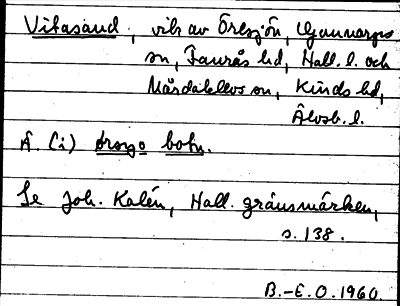 Vitasand, vik av Öresjön, Gunnarps
sn, Faurås hd, Hall. l. och
Mårdaklevs sn, Kinds hd,
Älvsb. l.
A. (i) botn.
Se Joh. Kalén, Hall. gränsmärken,
s. 138.
B.-E. O. 1960.